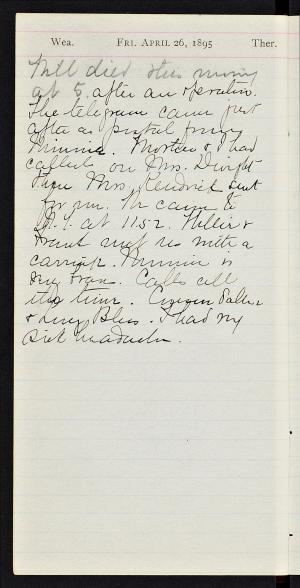 Wea. FRI. APRIL 26, 1895 Ther.
Will died this morning
at 5. after an operation.
The telegram came just
after a postal from
Minnie. Mother & I had
called on Mrs. Dwight
Then Mrs. Kendrick sent
for me. We came to
at 11.52. Willie &
Frank met us with a
carriage. Minnie is
very brave. Calls all
the time.
& Lucy Bliss. I had my
sick headache.